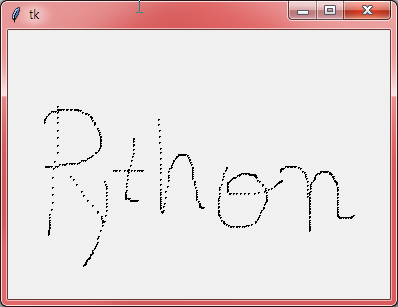 tk
Python